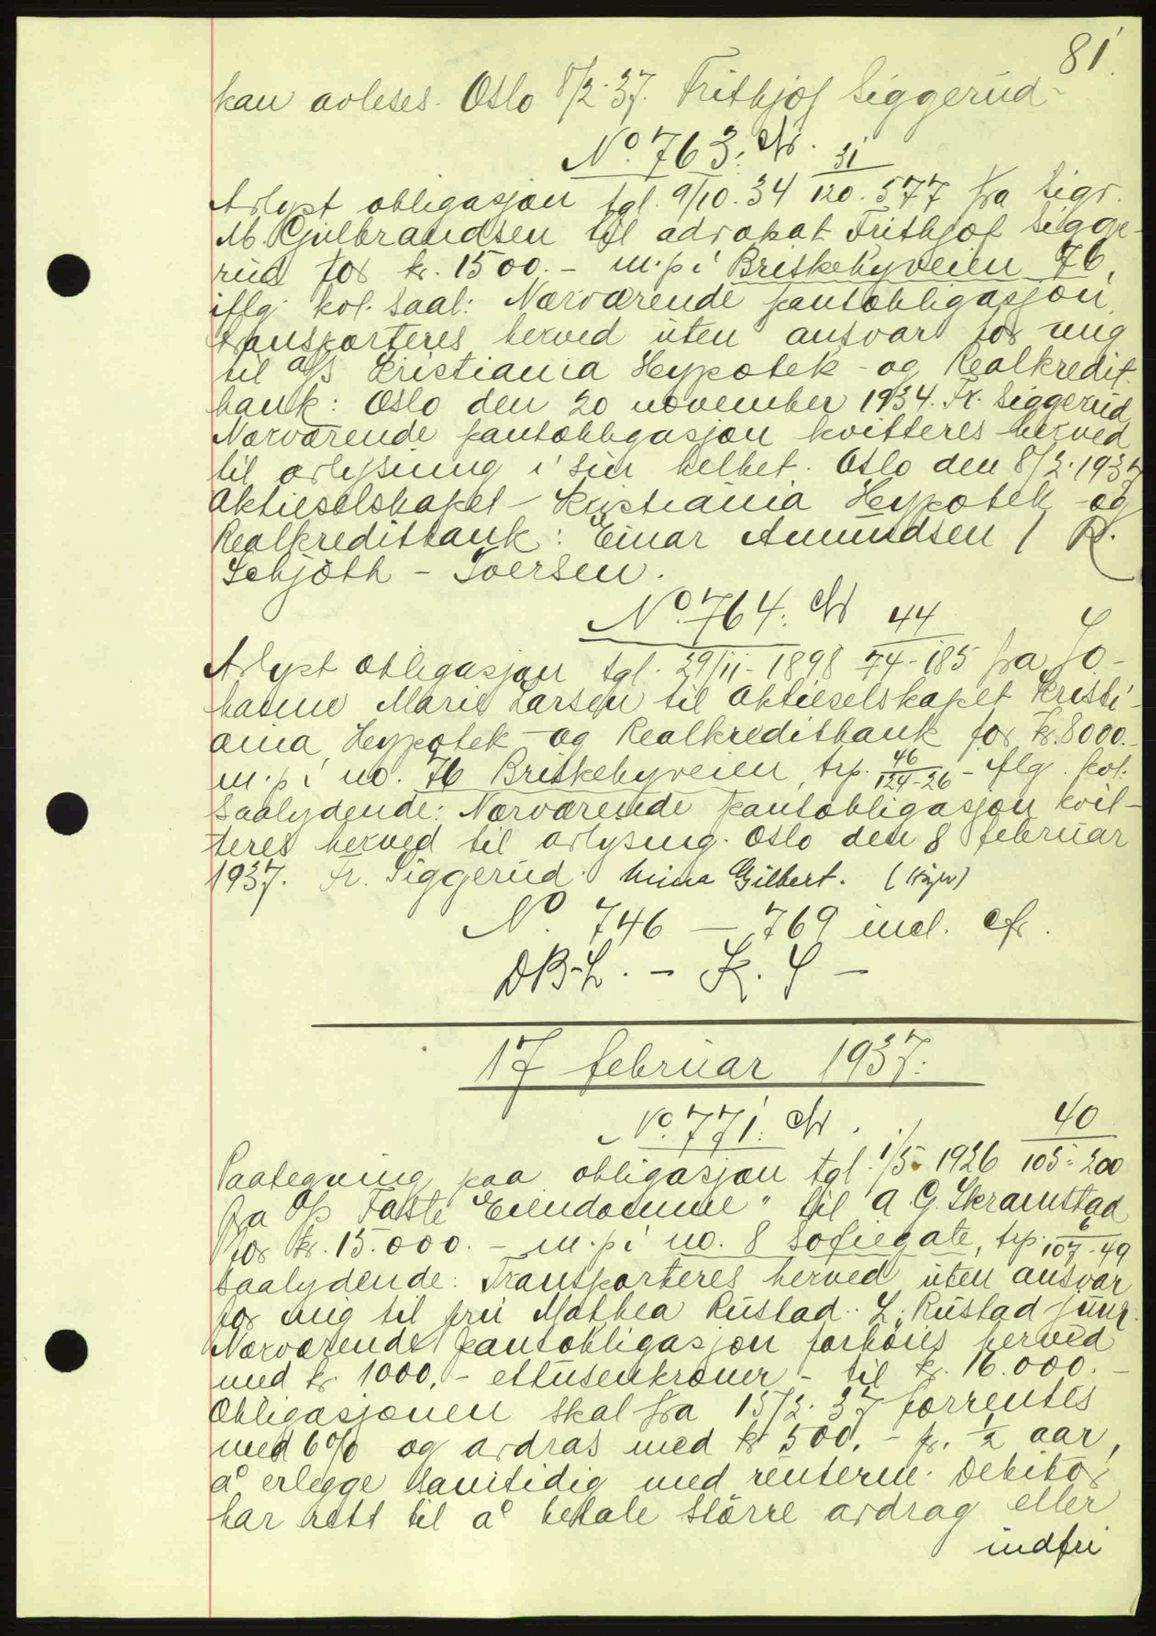 81.
kan avleses. Oslo 8/2.37. Frithjof Siggerud-
No. 763:
Avlyst obligasjon tgl. 9/10.34 31/120.577 fra Sigr.
M. Gulbrandsen til advokat Frithjof Sigge-
rud for kr. 1500.- m.p.i Briskebyveien 76,
iflg. kol. saal: Nærværende pantobligasjon
transporteres herved uten ansvar for mig
til a/s Kristiania Hypotek- og Realkredit-
bank: Oslo den 20 november 1934. Fr. Siggerud
Nærværende pantobligasjon kvitteres herved
til avlysning i sin helhet. Oslo den 8/2.1937
Aktieselskapet Kristiania Hypotek- og
Realkreditbank: Einar Amundsen / R.
Schjöth - Iversen.
No. 764:
Avlyst obligasjon tgl. 29/11-1898 44/74-185 fra Jo-
hanne Marie Larsen til aktieselskapet Kristi-
ania Hypotek- og Realkreditbank for kr. 8000.-
m.p.i no. 76 Briskebyveien, trp. 46/124-26 - iflg. kol.
saalydende: Nærværende pantobligasjon kvit-
teres herved til avlysning. Oslo den 8 februar
1937. Fr. Siggerud. Mina Gilbert.
No. 746 — 769 incl. cfr.
DB-L. - K. S -
17 februar 1937.
No. 771:
Paategning paa obligasjon tgl. 1/5. 1926 40/105-200
fra a/s Faste Eiendomme" til A G. Skramstad
for kr. 15.000.- m.p.i no. 8 Sofiegate, trp. 6/107-49
saalydende: Transporteres herved uten ansvar
for mig til fru Mathea Rustad. L. Rustad junr.
Nærværende pantobligasjon forhöies herved
med kr. 1000,- ettusenkroner - til kr. 16.000.-
Obligasjonen skal fra 15/2.37 forrentes
med 6% og avdras med kr 500.- pr. 1/2 aar,
å erlegge samtidig med renterne. Debitor
har rett til å betale större avdrag eller
indfri